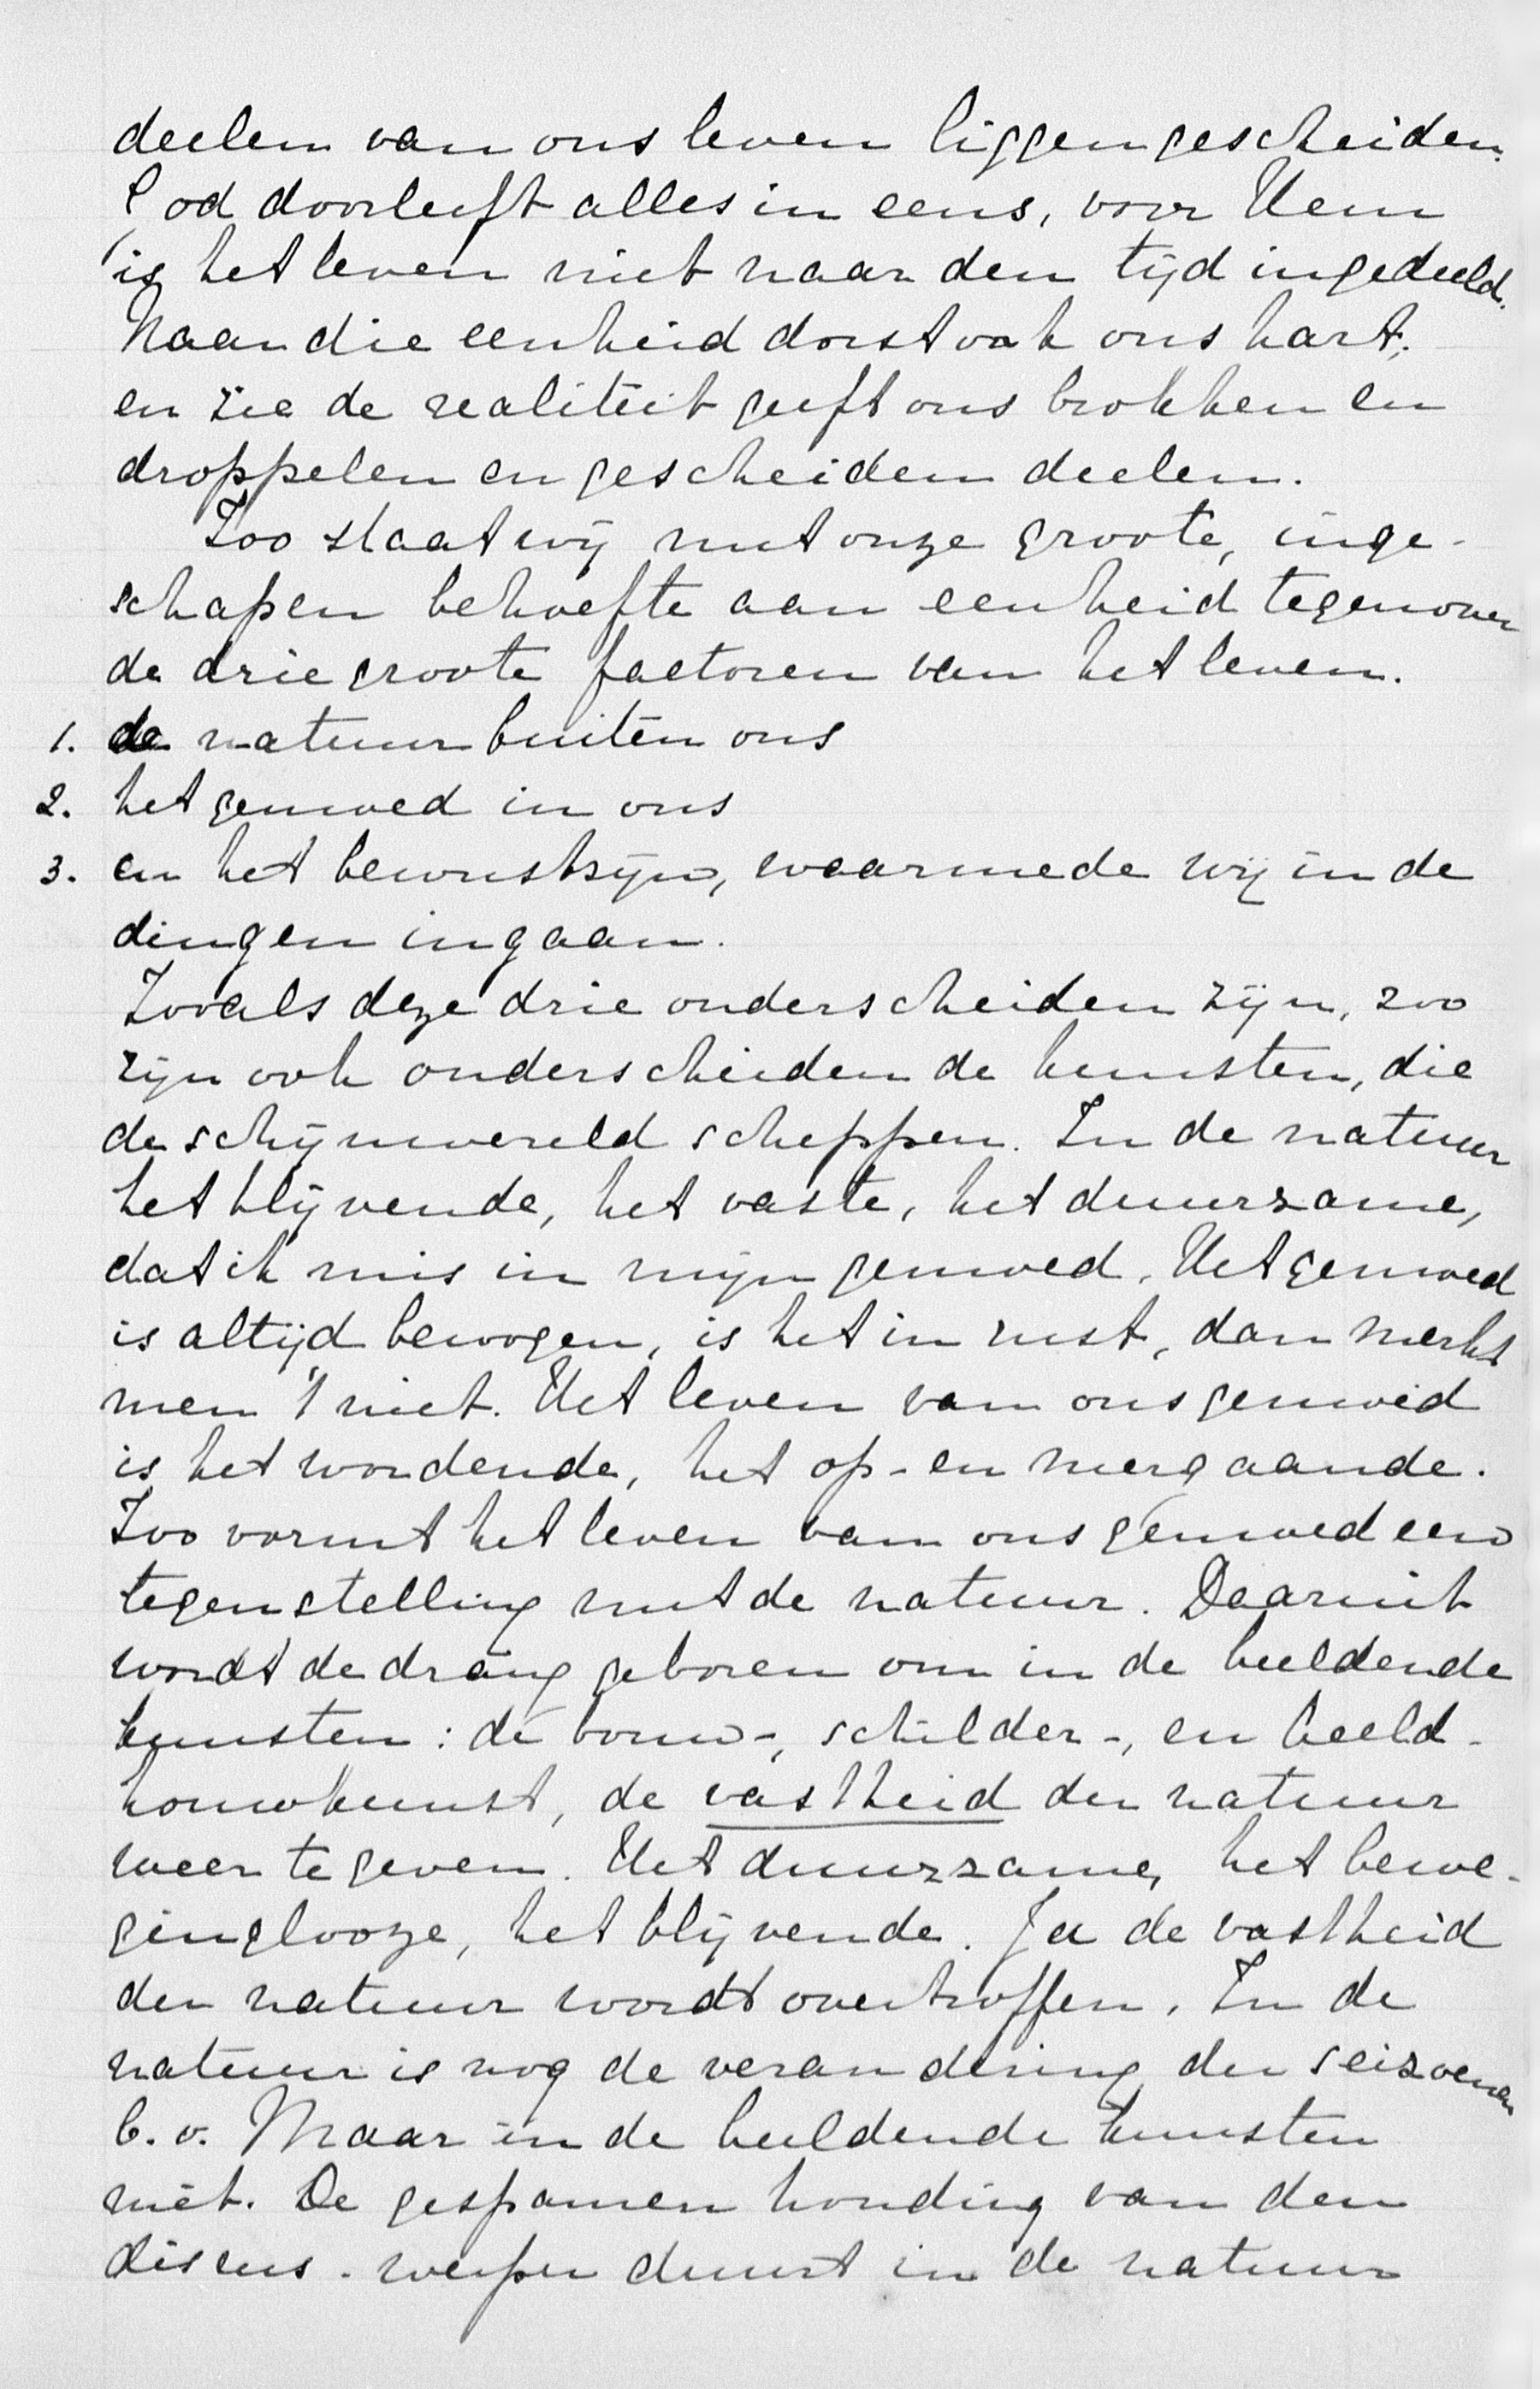 deelen van ons leven liggen gescheiden.
God doorleeft alles in eens, voor Hem
is het leven niet naar den tijd ingedeeld.
Naar die eenheid dorst ook ons hart,
en zie de realiteit geeft ons brokken en
droppelen en gescheiden deelen.
Zoo staat wij met onze groote, inge-
schapen behoefte aan eenheid tegenover
de drie groote factoren van het leven.
1. de natuur buiten ons
2. het gemoed in ons
3. en het bewustzijn, waarmede wij in de
dingen ingaan.
Zooals deze drie onderscheiden zijn, zoo
zijn ook onderscheiden de kunsten, die
de schijnwereld scheppen. In de natuur
het blijvende, het vaste, het duurzame,
dat ik mis in mijn gemoed. Het gemoed
is altijd bewogen, is het in rust, dan merkt
men 't niet. Het leven van ons gemoed
is het wordende, het op- en neergaande.
Zoo vormt het leven van ons gemoed een
tegenstelling met de natuur. Daaruit
wordt de drang geboren om in de beeldende
kunsten: de bouw-, schilder-, en beeld-
houwkunst, de vastheid der natuur
weer te geven. Het duurzame, het bewe-
gingslooze, het blijvende. Ja de vastheid
der natuur wordt overtroffen. In de
natuur is nog de verandering der seizoenen
b.v. Maar in de beeldende kunsten
niet. De gespannen houding van den
discus-werper duurt in de natuur